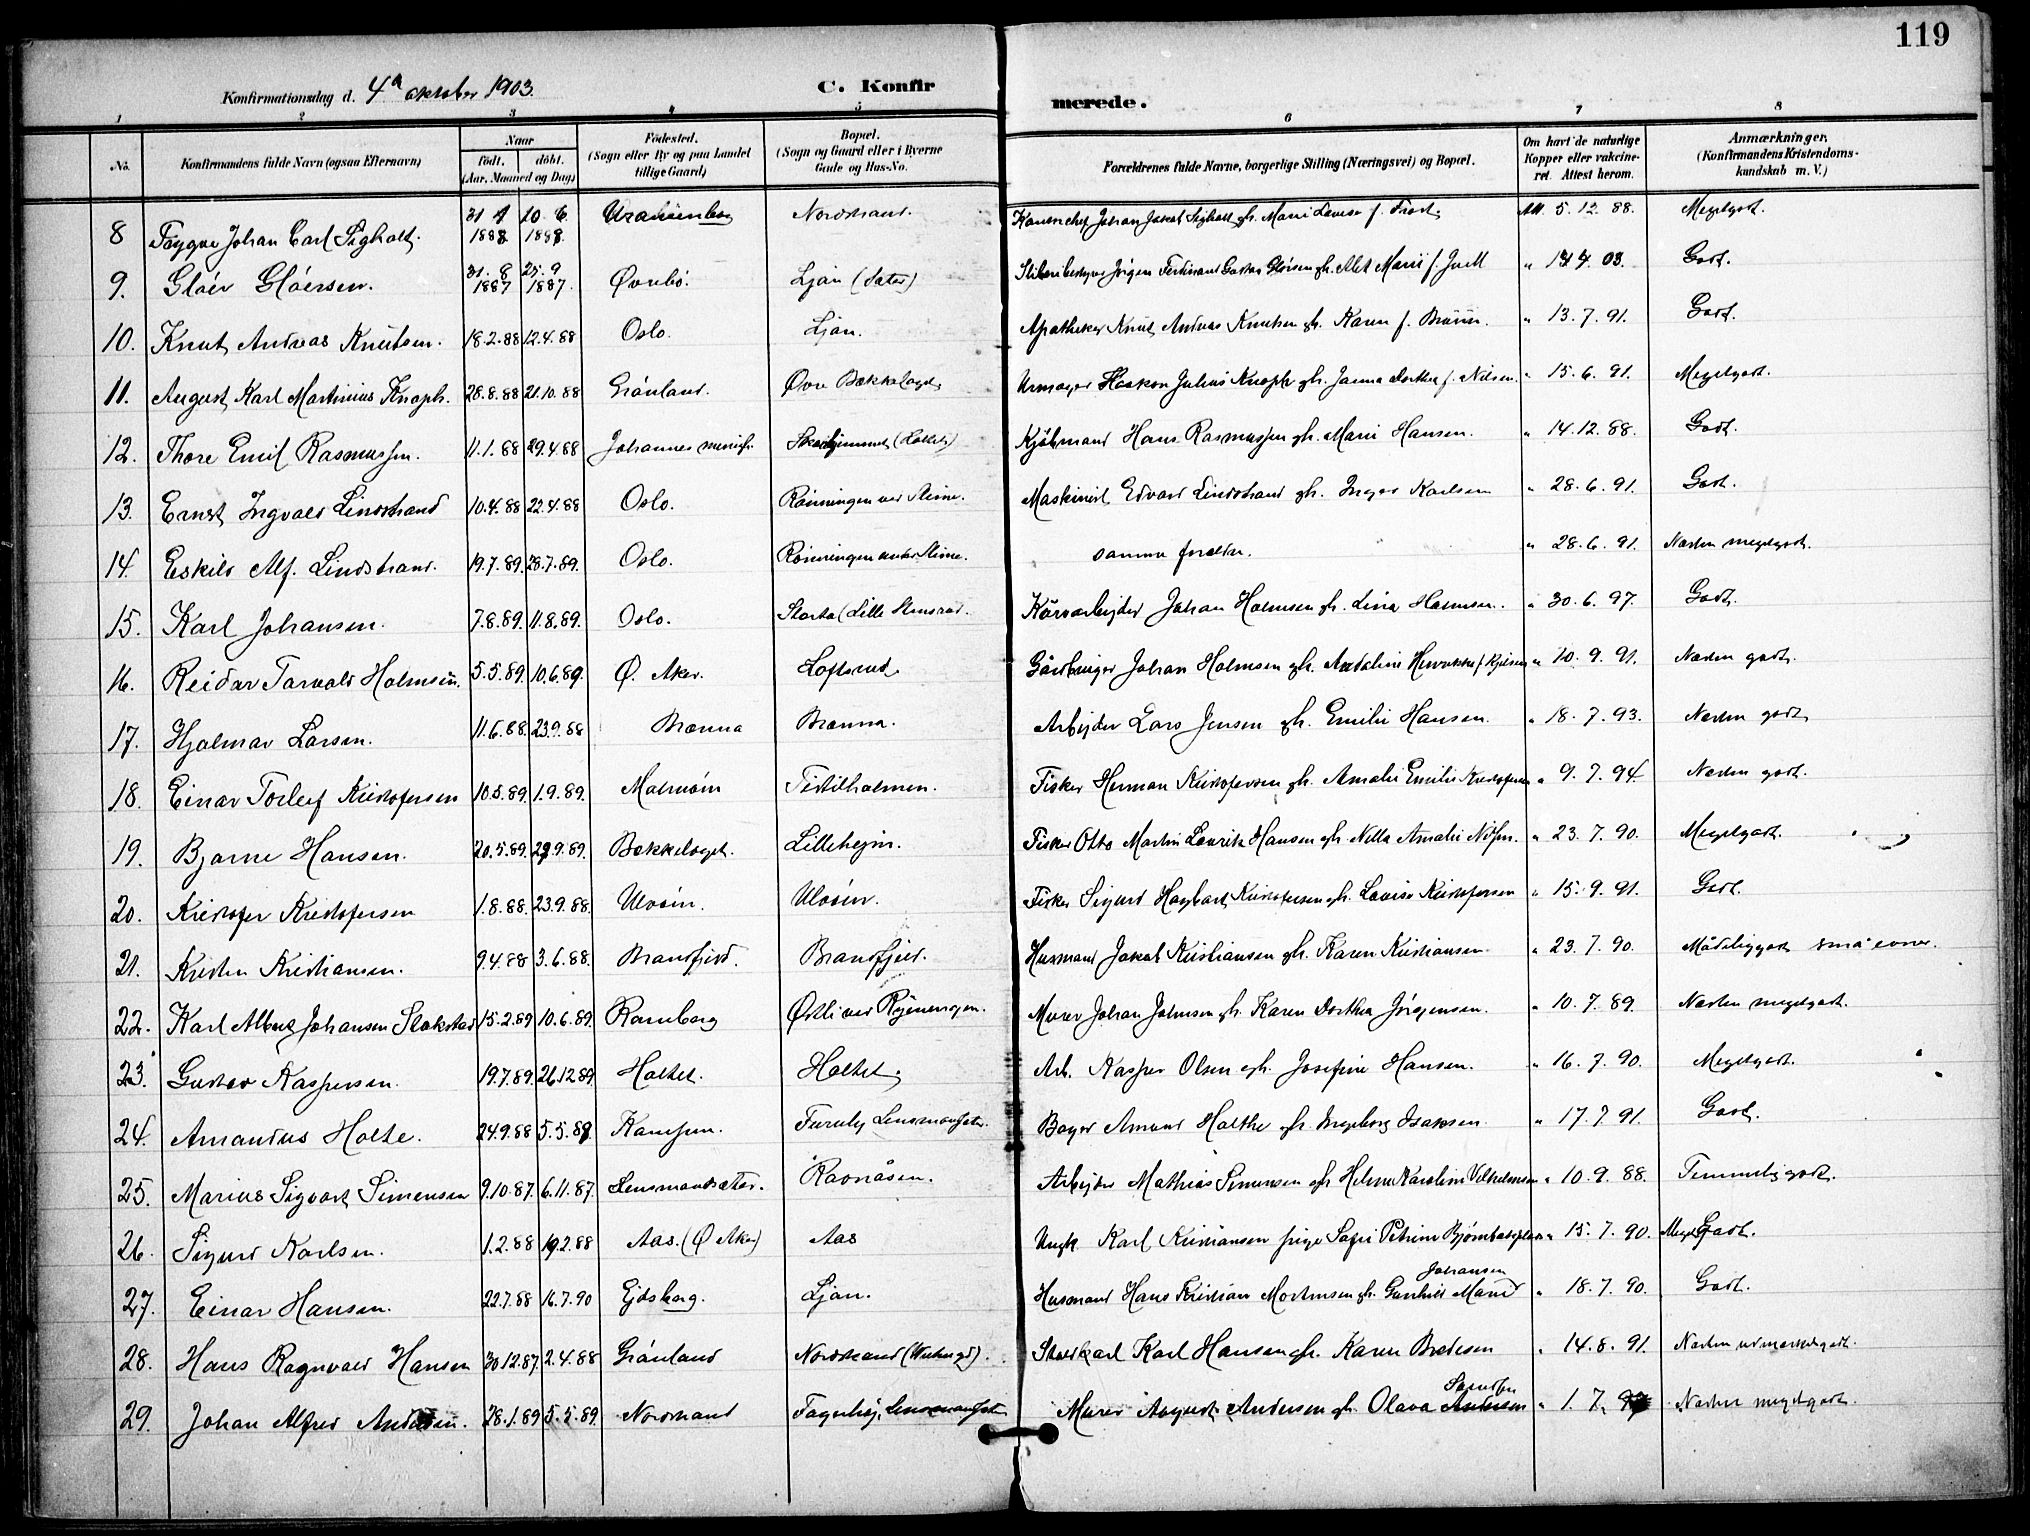 119
Konfirmationsdag d. 4de oktober 1903.
C. Konfirmerede.
1 2 3 4 5 6 7 8
No. Konfirmandens fulde Navn (ogsaa Efternavn) Naar født. døbt. (Aar, Maaned og Dag) Fødested. (Sogn eller By og paa Landet tillige Gaard) Bopæl. (Sogn og Gaard eller i Byerne Gade og Hus-No. Forældrenes fulde Navne, borgerlige Stilling (Næringsvei) og Bopæl. Om havt de naturlige Kopper eller vakcineret. Attest herom. Anmærkninger, (Konfirmandens Kristendomskundskab m. V.)
8 Trygve Johan Carl Sigholt. 1888 10. 6. 1888. Uranienborg Nordstrand. Johan Jakob Sigholt gh. Marie Lovise f. Frost. Att. 5. 12. 88. Megetgodt.
9. Glöer Glöersen. 31. 8 1887 25. 9 1887. Øvrebö. Ljan (Sæter) Jörgen Ferdinand Gustav Glörsen gh. Alet Marie f. Juell " 03. Godt.
10. Knut Andreas Knutsen. 18.2.88 12.4.88 Oslo. Ljan. Apotheker Knut Andreas Knutsen gh. Karen f. Bruun. " 13. 7. 91. Godt.
11. August Karl Martinius Knoph. 28.8.88 21.10.88 Grönland. Øvre Bækkelaget Urmager Haakon Julius Knoph gh. Janna Dorthea f. Nilsen. " 15. 6. 91. Megetgodt.
12. Thore Emil Rasmussen. 11.1.88 29.4.88 Johannes menigh. (Holtet) Kjöbmand Hans Rasmussen gh. Marie Hansen. " 14. 12. 88. Godt.
13. Ernst Ingvald Lindstrand 10.4.88 22.4.88 Oslo. Rönningen ved Stene. Maskinist Edvard Lindstrand gh. Inger Karlsen " 28. 6. 91. Godt.
14. Eskild Alf. Lindstrand. 19.7.89. 28.7.89. Oslo. Rönningen under Stene. samme foreldre. " 28. 6. 91. Næsten megetgodt.
15. Karl Johansen. 7.8.89. 11.8.89. Oslo. (Lille Stensrud. Johan Holmsen gh. Lina Holmsen. " 30. 6. 97. Godt.
16. Reidar Torvald Holmsen. 5.5.89. 10.6.89. Ø. Aker. Loftsrud. Gårdbruger Johan Holmsen gh. f. " 10. 9. 91. Næsten godt.
17. Hjalmar Larsen. 11.6.88. 23.9.88 Brænna Brænna. Arbejder Lars Jensen gh. Emilie Hansen. " 18. 7. 93. Næsten godt.
18. Einar Torleif Kristofersen 10.5.89. 1.9.89. Malmöin Tistilholmen. Fisker Herman Kristofersen gh. Amalie Emilie Kristofersen " 9. 7. 94. Næsten godt.
19. Bjarne Hansen. 20.5.89. 29.9.89. Bækkelaget. Lillehejm. Fisker Otto Martin Lauritz Hansen gh. Nella Amalie " 23. 7. 90. Megetgodt.
20. Kristofer Kristofersen 1.8.88. 23.9.88. Ulvöin. Ulvöin. Fisker Sigurd Hagbart Kristofersen gh. Lovise Kristofersen " 15. 9. 91. Godt.
21. Kristen Kristiansen. 9.4.88 3.6.88. Brandfjeld. Brandfjeld. Husmand Jakob Kristiansen gh. Karen Kristiansen. " 23. 7. 90. Mådeliggodt små evner.
22. Karl Albert Johansen Stokstad 15.2.89 10.6.89. Ramberg Østli ved Johan Johnsen gh. Karen Dorthea Jörgensen. " 10. 7. 89. Næsten megetgodt.
23. Gustav Kaspersen. 19.7.89. 26.12.89 Holtet. Holtet. Arb. Kasper Olsen gh. Josefine Hansen. " 16. 7. 90. Megetgodt.
24. Amandus Holte. 24.9.88 5.5.89. Kampen. Furuly Lensmandsæter. Bager Amund Holthe gh. Ingeborg Isaksen. " 17. 7 91. Godt.
25. Marius Sigvart Simensen 9.10.87. 6.11.87. Lensmandsæter. Ravnåsen. Arbejder Mathias Simensen gh Helene Karoline Vilhelmsen " 10. 9. 88. Temmelig godt.
26. Sigurd Karlsen. 1.2.88 19.2.88 Aas. (Ø Aker) Aas Ungk. Karl Kristiansen pige Petrine " 15. 7. 90. Meget Godt.
27. Einar Hansen. 22.7.88 16.7.90 Ejdsberg. Ljan. Husmand Hans Kristian Mortensen gh. Gunhild Marie Johansen " 18. 7. 90. Godt.
28. Hans Ragnvald Hansen 30.12.87. 2.4.88 Grönland Nordstrand Karl Hansen gh. Karen Bredesen " 14. 8. 91. Næsten udmærketgodt.
29. Johan Alfred Andersen. 28.1.89 5.5.89. Nordstrand Fagerhöj, Lensmandsæt. Murer August Andersen gh. Olava " 1. 7. Næsten megetgodt.